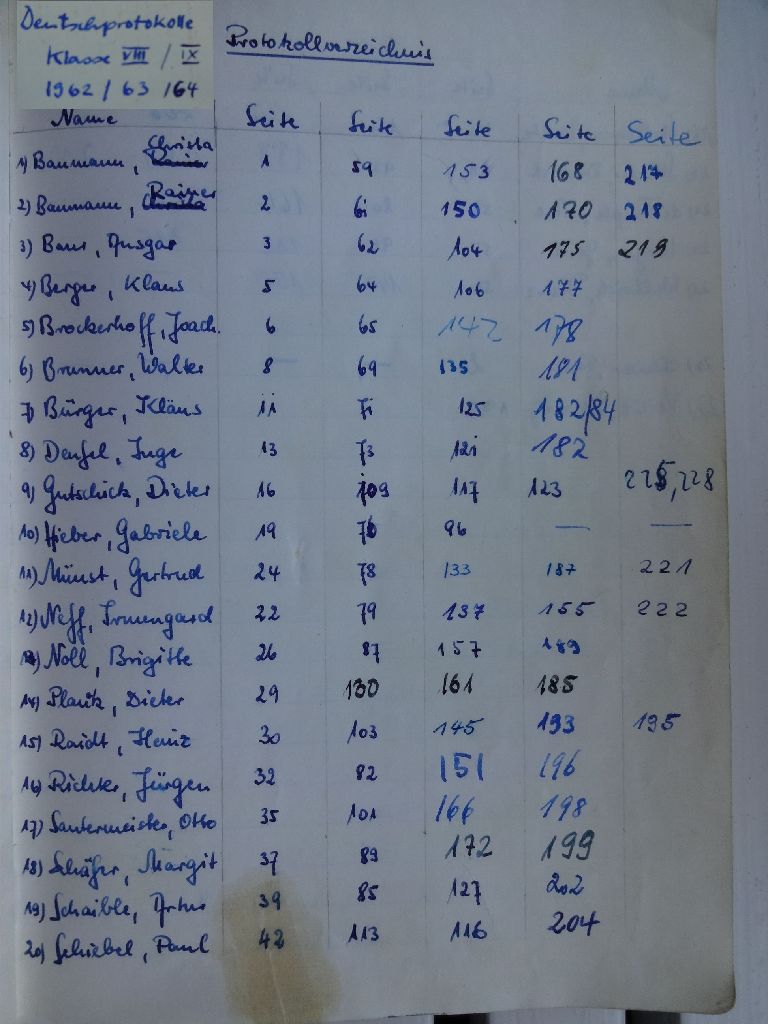 Deutschprotokolle
Klasse VIII / IX
1962 / 63 / 64
Protokollverzeichnis
Name Seite Seite Seite Seite Seite
1) Baumann, Christa 1 59 153 168 217
2) Baumann, Rainer 2 61 150 170 218
3) Baur, Ansgar 3 62 104 175 219
4) Berger, Klaus 5 64 106 177
5) Brockerhoff, Joach. 6 65 142 178
6) Brunner, Walter 8 69 135 181
7) Bürger, Klaus 11 71 125 182/84
8) Deufel, Inge 13 73 121 182
9) Gutschick, Dieter 16 109 117 123 225, 228
10) Hieber, Gabriele 19 76 96 — —
11) Münst, Gertrud 24 78 133 187 221
12) Neff, Irmengard 22 79 137 155 222
13) Noll, Brigitte 26 87 157 189
14) Plautz, Dieter 29 130 161 185
15) Raidt, Heinz 30 103 145 193 195
16) Richter, Jürgen 32 82 151 196
17) Sautermeister, Otto 35 101 166 198
18) Schäfer, Margit 37 89 172 199
19) Schaible, Artur 39 85 127 202
20) Schiebel, Paul 42 113 116 204